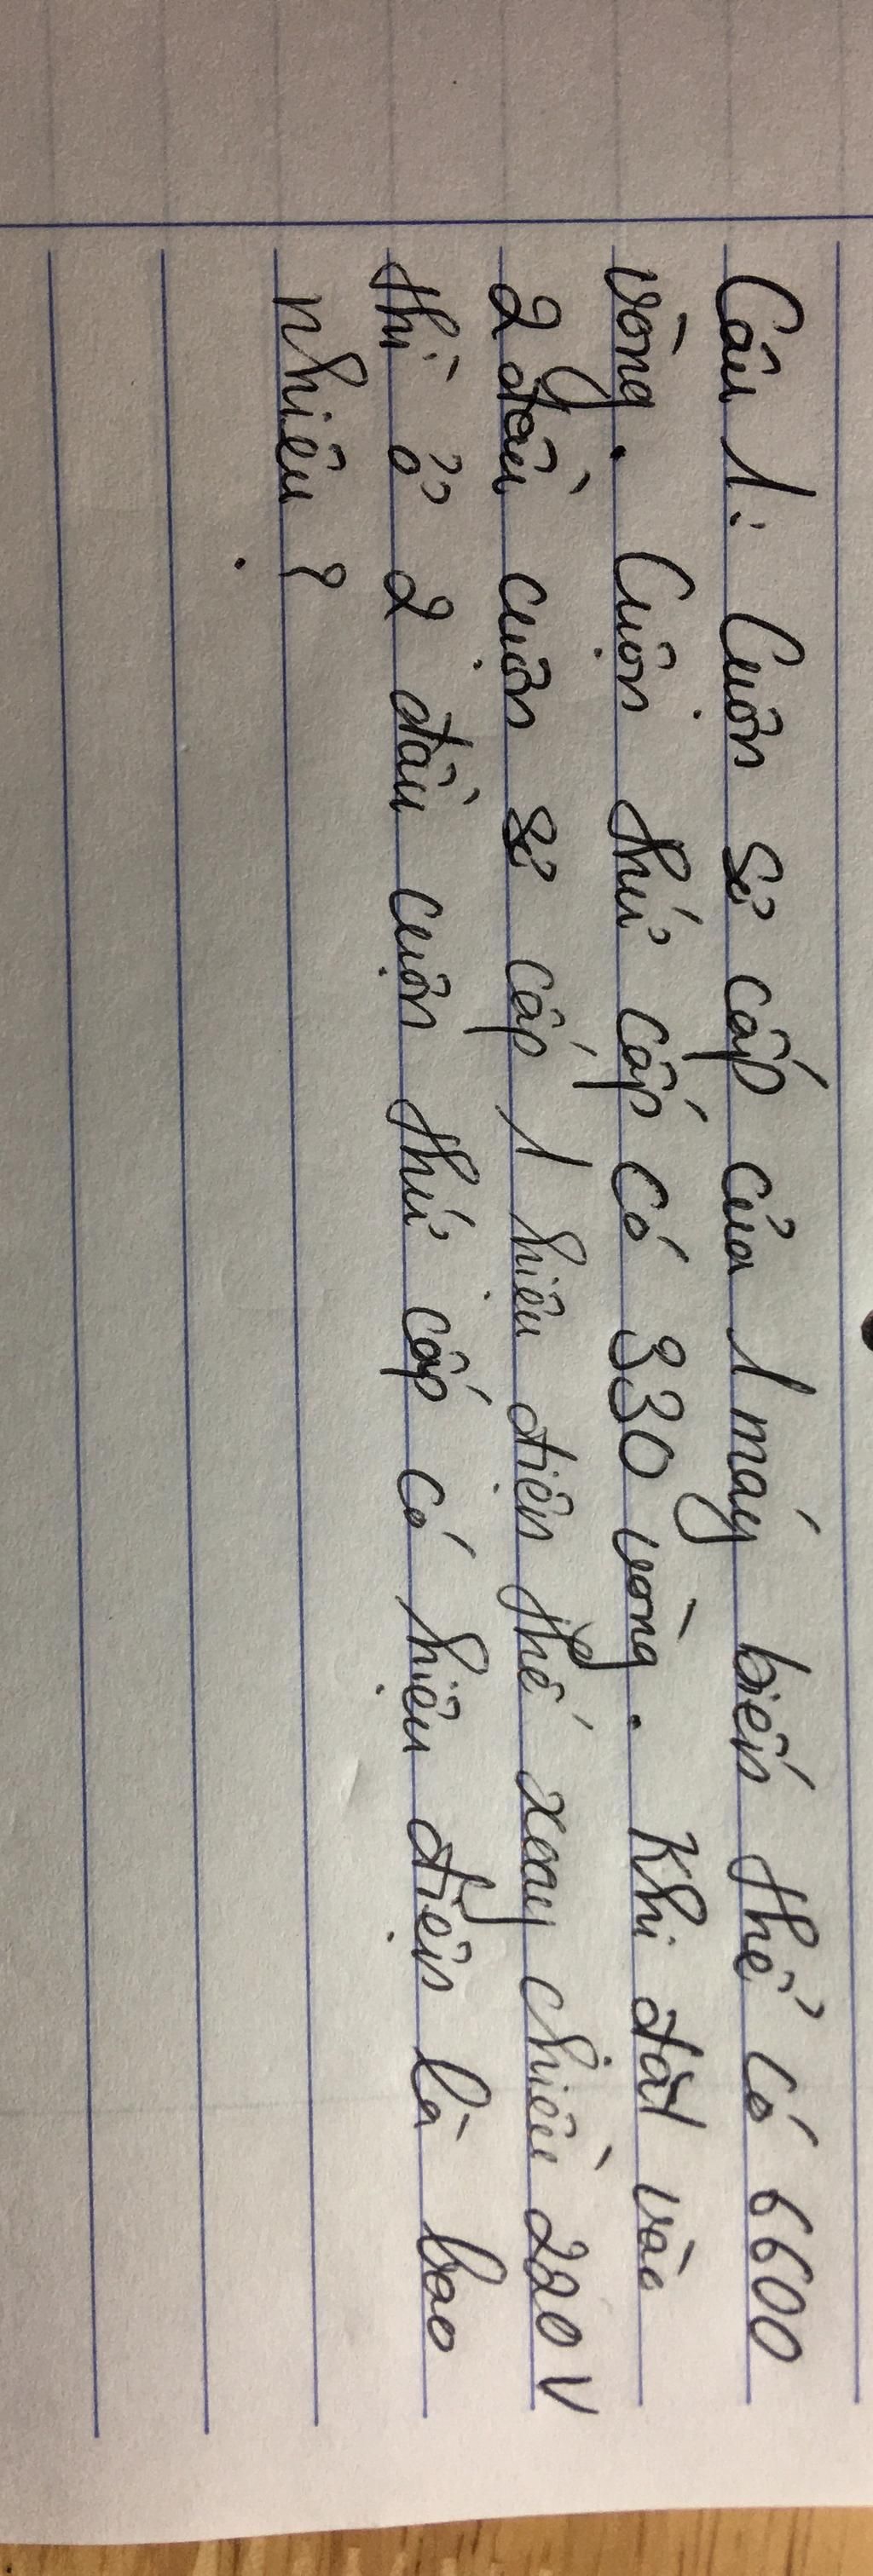 Câu 1: Cuộn sơ cấp của 1 máy biến thế có 6600
vòng. Cuộn thứ cấp có 330 vòng. Khi đặt vào
2 đầu cuộn sơ cấp 1 hiệu điện thế xoay chiều 220V
thì ở 2 đầu cuộn thứ cấp có hiệu điện là bao
nhiêu?